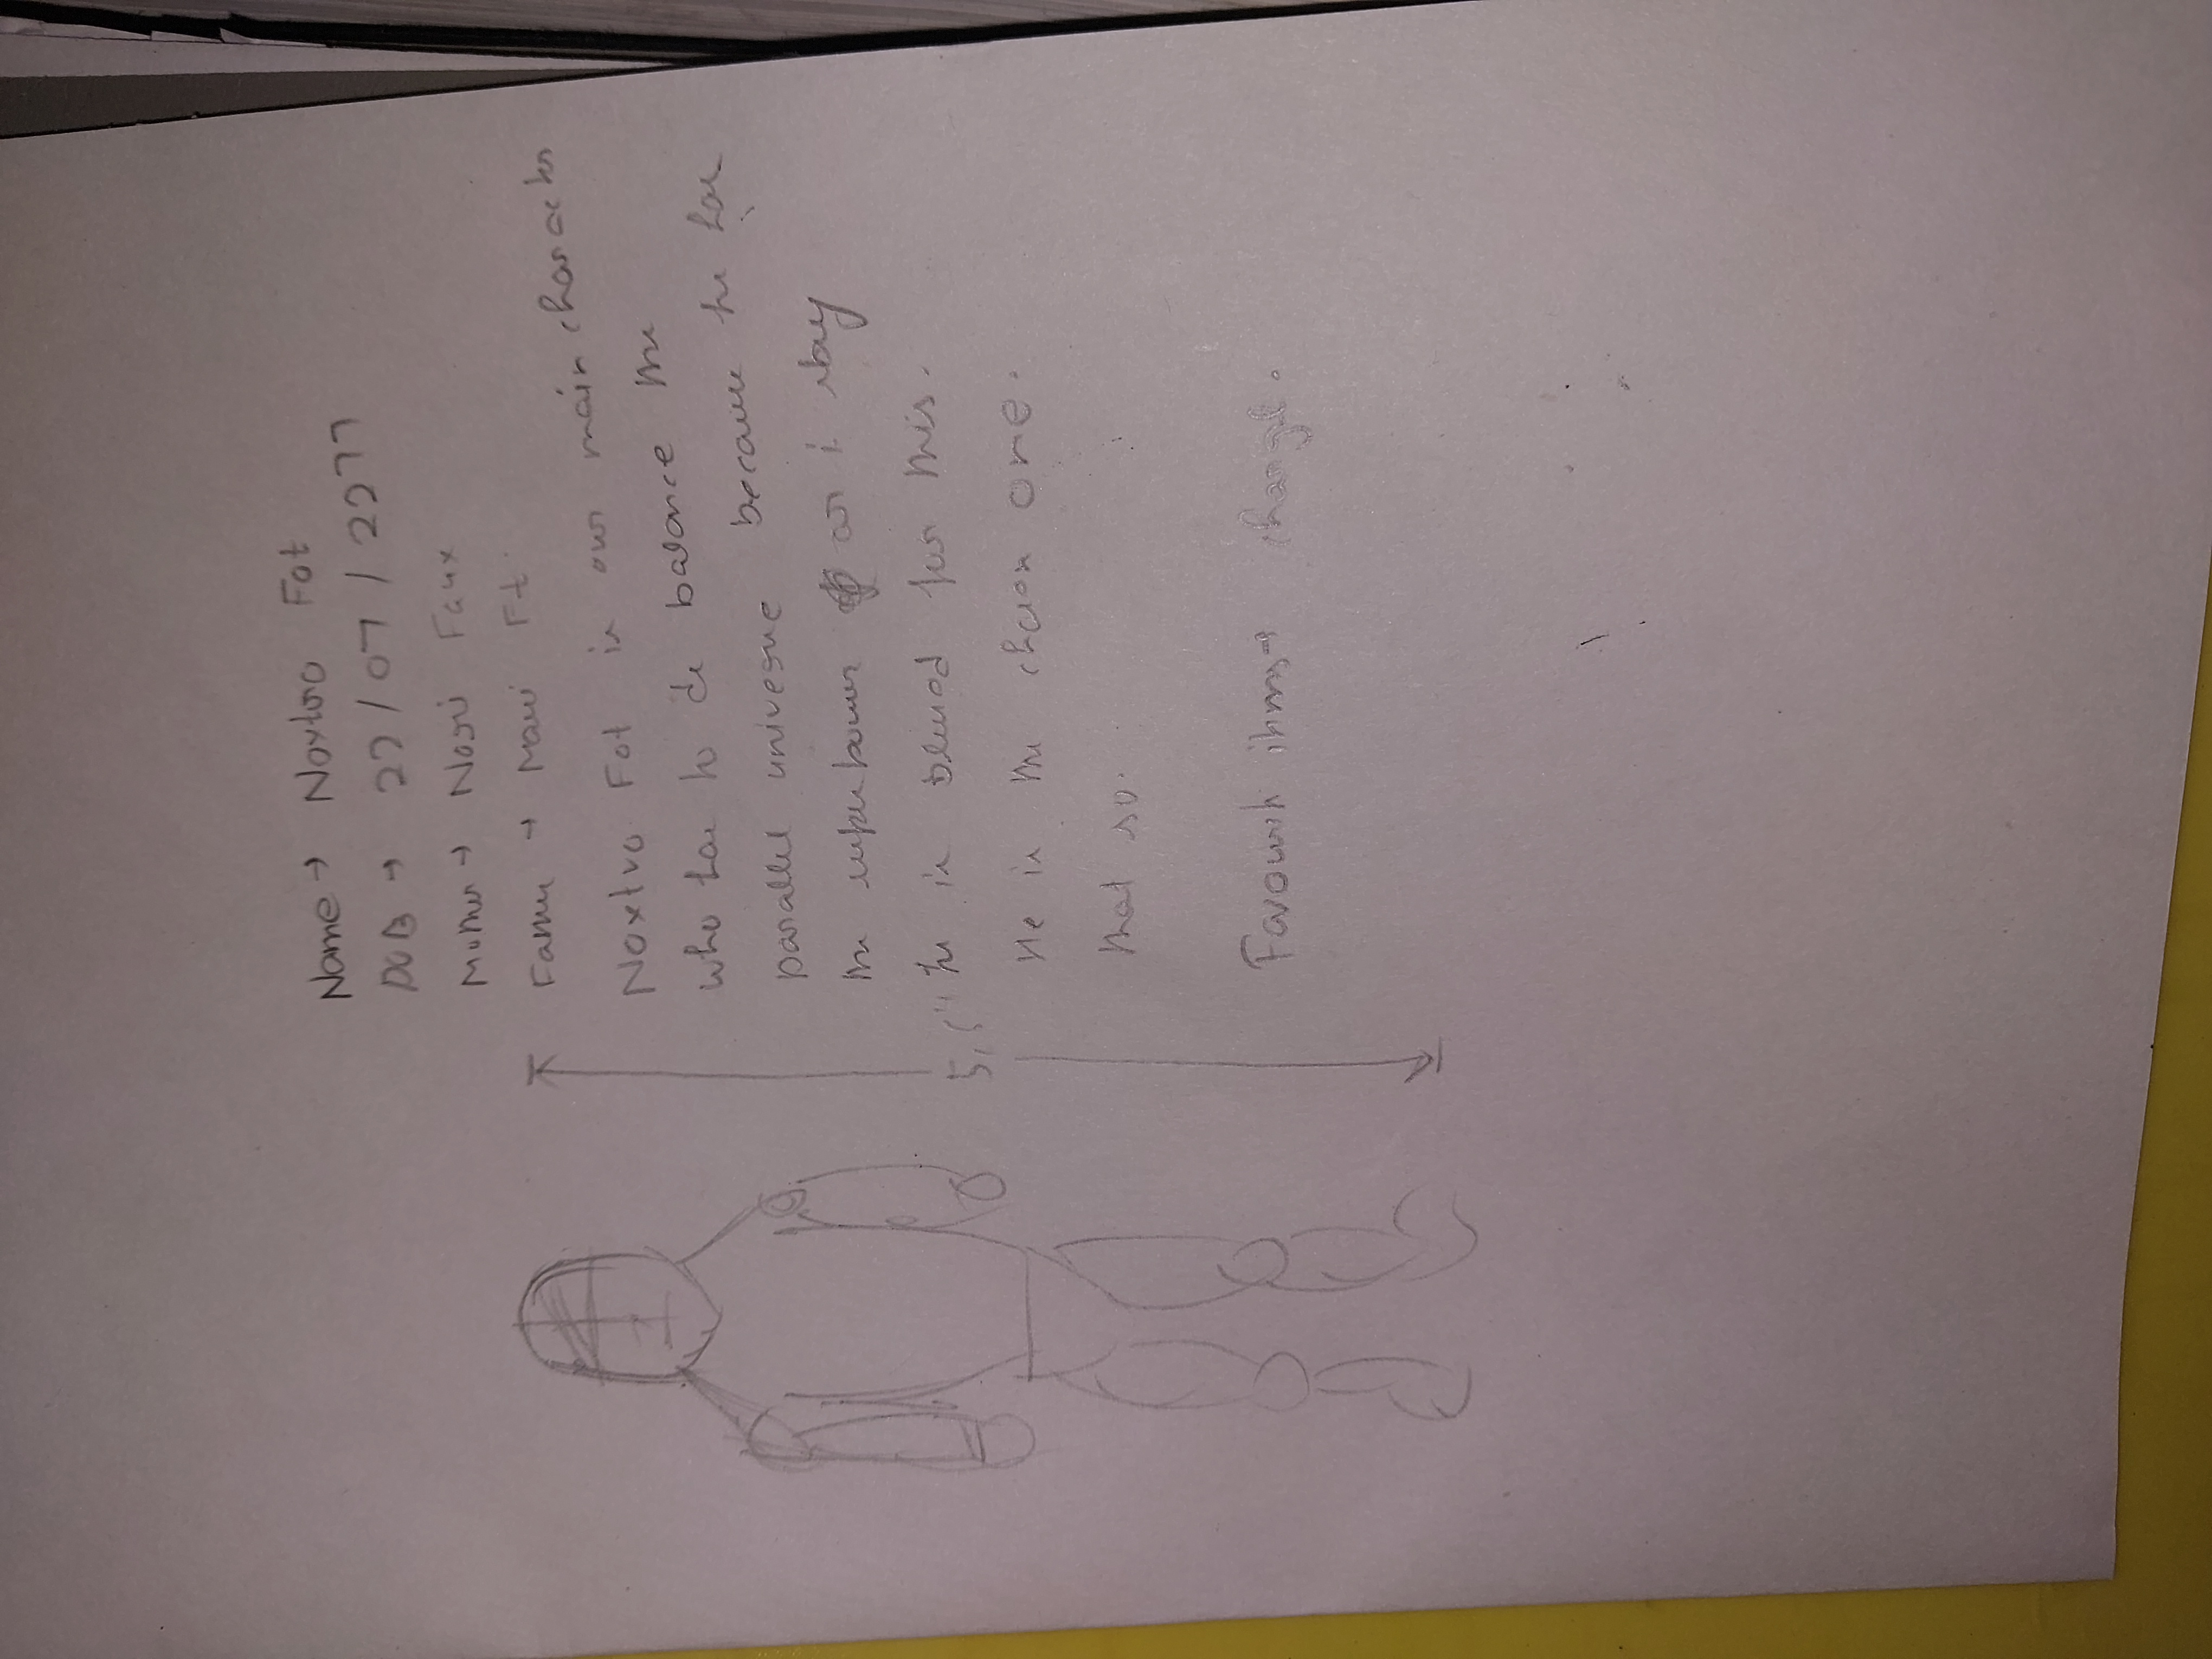 Name → Noxtro Fot
DOB → 27/07/2277
Mother → Faux
Father → Ft
Noxtro Fot is our main character
who has to balance the
parallel univesue because he has
the superpower or i say
he is blessed for this.
He is the chosen one.
that so.
5,5"
Favourite items → change.